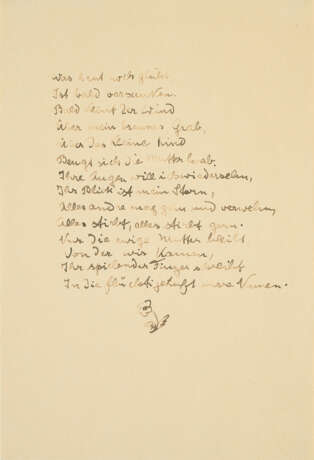 Was heut noch glüht,
Ist bald versunken.
Bald klirrt der Wind
Über mein braunes Grab,
Über das kleine Kind
Beugt sich die Mutter herab.
Ihre Augen will ich wiedersehn,
Ihr Blick ist mein Stern,
Alles andre mag gehn und verwehn,
Alles stirbt, alles stirbt gern.
Nur die ewige Mutter bleibt
Von der wir kamen,
Ihr spielender Finger schreibt
In die flüchtige Luft unsre Namen.